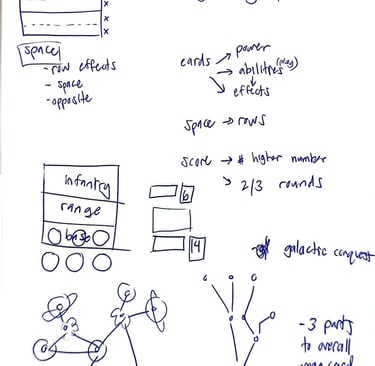 x
x
x
space
- row effects
- space
- opposite
cards → power
→ abilities (play)
↘ effects
space → rows
score → # higher number
↘ 2/3 rounds
infantry
range
base
6
14
galactic conquest
3
- 3 parts
to overall